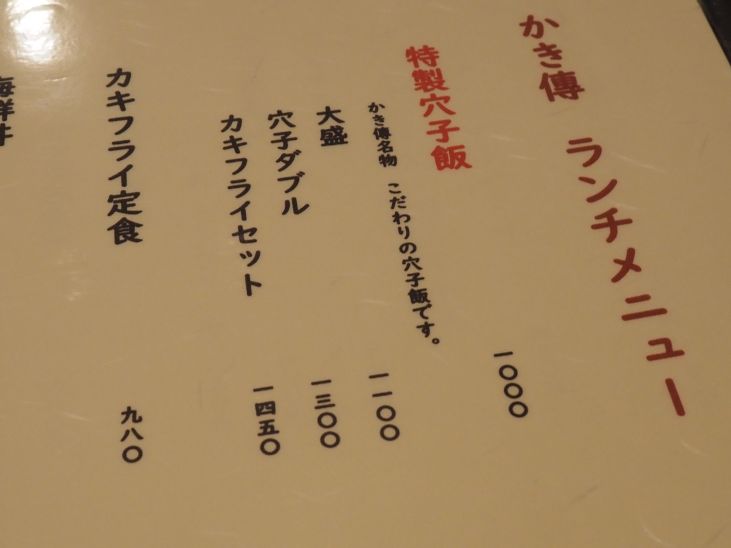 かき傳 ランチメニュー
特製穴子飯 一〇〇〇
かき傳名物 こだわりの穴子飯です。
大盛 一一〇〇
穴子ダブル 一三〇〇
カキフライセット 一四五〇
カキフライ定食 九八〇
海鮮丼